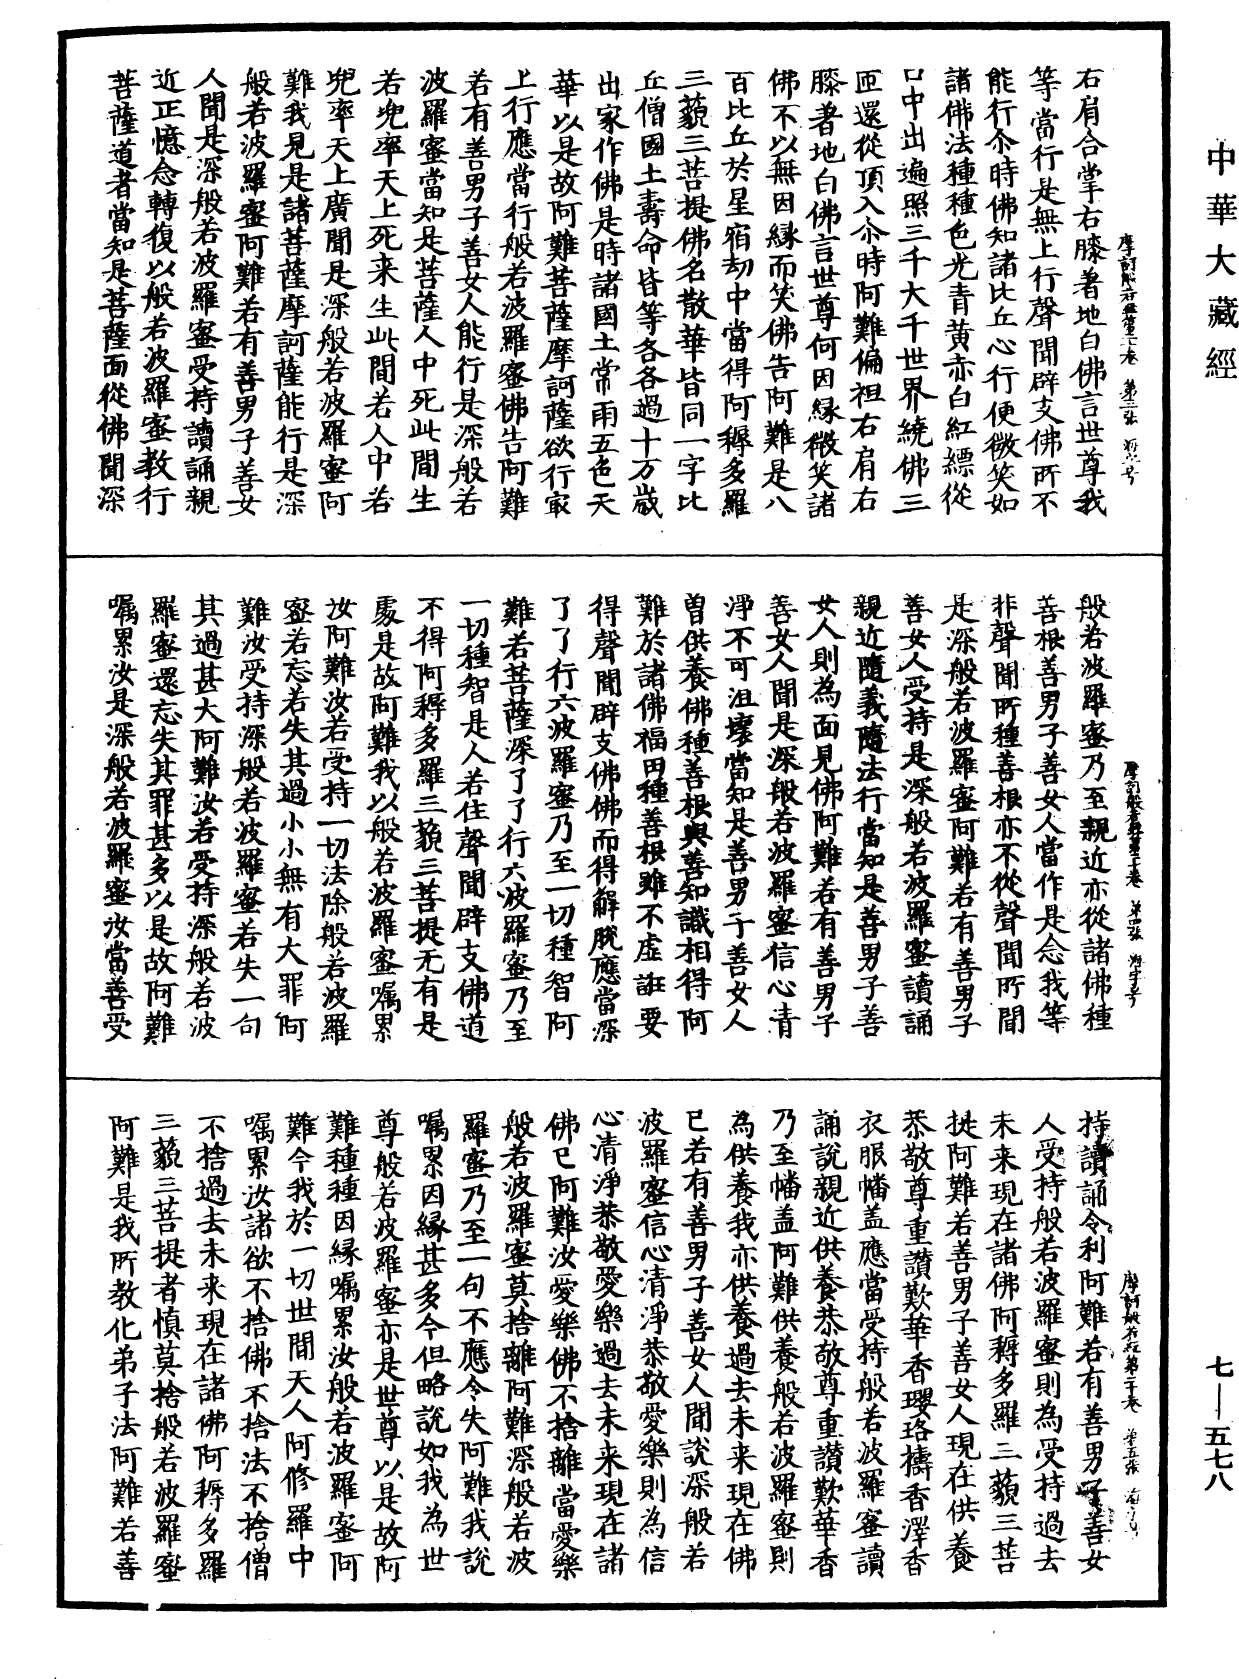 中華大藏經
右肩合掌右膝著地白佛言世尊我
等當行是無上行聲聞辟支佛所不
能行尒時佛知諸比丘心行便微笑如
諸佛法種種色光青黄赤白紅縹從
口中出遍照三千大千世界繞佛三
匝還從頂入尒時阿難偏袒右肩右
膝著地白佛言世尊何因緣微笑諸
佛不以無因緣而笑佛告阿難是八
百比丘於星宿劫中當得阿耨多羅
三藐三菩提佛名散華皆同一字比
丘僧國土壽命皆等各各過十万歲
出家作佛是時諸國土常雨五色天
華以是故阿難菩薩摩訶薩欲行㝡
上行應當行般若波羅蜜佛告阿難
若有善男子善女人能行是深般若
波羅蜜當知是菩薩人中死此間生
若兜率天上死来生此間若人中若
兜率天上廣聞是深般若波羅蜜阿
難我見是諸菩薩摩訶薩能行是深
般若波羅蜜阿難若有善男子善女
人聞是深般若波羅蜜受持讀誦親
近正憶念轉復以般若波羅蜜教行
菩薩道者當知是菩薩面從佛聞深
般若波羅蜜乃至親近亦從諸佛種
善根善男子善女人當作是念我等
非聲聞所種善根亦不從聲聞所聞
是深般若波羅蜜阿難若有善男子
善女人受持是深般若波羅蜜讀誦
親近隨義隨法行當知是善男子善
女人則為面見佛阿難若有善男子
善女人聞是深般若波羅蜜信心清
淨不可沮壞當知是善男子善女人
曽供養佛種善根與善知識相得阿
難於諸佛福田種善根雖不虛誑要
得聲聞辟支佛佛而得解脫應當深
了了行六波羅蜜乃至一切種智阿
難若菩薩深了了行六波羅蜜乃至
一切種智是人若住聲聞辟支佛道
不得阿耨多羅三藐三菩提无有是
處是故阿難我以般若波羅蜜囑累
汝阿難汝若受持一切法除般若波羅
蜜若忘若失其過小小無有大罪阿
難汝受持深般若波羅蜜若失一句
其過甚大阿難汝若受持深般若波
羅蜜還忘失其罪甚多以是故阿難
囑累汝是深般若波羅蜜汝當善受
持讀誦令利阿難若有善男子善女
人受持般若波羅蜜則為受持過去
未来現在諸佛阿耨多羅三藐三菩
提阿難若善男子善女人現在供養
恭敬尊重讃歎華香瓔珞擣香澤香
衣服幡盖應當受持般若波羅蜜讀
誦說親近供養恭敬尊重讃歎華香
乃至幡盖阿難供養般若波羅蜜則
為供養我亦供養過去未来現在佛
已若有善男子善女人聞說深般若
波羅蜜信心清淨恭敬愛樂則為信
心清淨恭敬愛樂過去未来現在諸
佛已阿難汝愛樂佛不捨離當愛樂
般若波羅蜜莫捨離阿難深般若波
羅蜜乃至一句不應令失阿難我說
囑累因緣甚多今但略說如我為世
尊般若波羅蜜亦是世尊以是故阿
難種種因緣囑累汝般若波羅蜜阿
難今我於一切世間天人阿修羅中
囑累汝諸欲不捨佛不捨法不捨僧
不捨過去未来現在諸佛阿耨多羅
三藐三菩提者慎莫捨般若波羅蜜
阿難是我所教化弟子法阿難若善
七—五七八